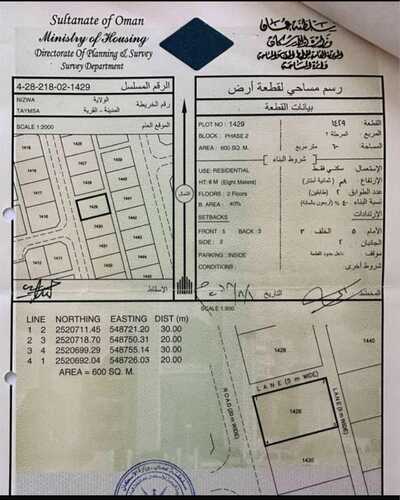 Sultanate of Oman
Ministry of Housing
Directorate Of Planning & Survey
Survey Department
سلطنة عمان
وزارة الإسكان
4-28-218-02-1429
الرقم المسلسل
رسم مساحي لقطعة أرض
NIZWA
الولاية
TAYMSA
المدينة - القرية
رقم الخريطة
SCALE 1:2000
الموقع العام
بيانات القطعة
PLOT NO : 1429
١٤٢٩
القطعة
BLOCK : PHASE 2
المرحلة ٢
المربع
AREA : 600 SQ. M.
٦٠٠ متر مربع
المساحة
شروط البناء
USE: RESIDENTIAL
سكني فقط
الاستعمال
HT: 8 M (Eight Meters)
٨م (ثمانية أمتار)
الارتفاع
FLOORS : 2 Floors
٢ (طابقين)
عدد الطوابق
B. AREA : 40%
٤٠ % (أربعون بالمائة)
نسبة البناء
SETBACKS
الارتدادات
FRONT : 5 BACK : 3
الأمام ٥ الخلف ٣
SIDE : 2
الجانبان ٢
PARKING : INSIDE
داخل حدود القطعة
موقف
CONDITIONS :
شروط أخرى
1429
الشمال
الإسقاط
التاريخ
المخطط
SCALE 1:500
LINE NORTHING EASTING DIST (m)
1 2 2520711.45 548721.20 30.00
2 3 2520718.70 548750.31 20.00
3 4 2520699.29 548755.14 30.00
4 1 2520692.04 548726.03 20.00
AREA = 600 SQ. M.
1428
1440
LANE (5 m WIDE)
ROAD (20 m WIDE)
1429
LANE (5 m WIDE)
1430